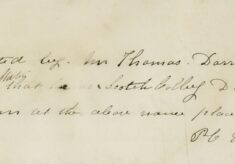 ted by Mr Thomas Darr
that he a Scotch Colley D
at the above name place
P.C.